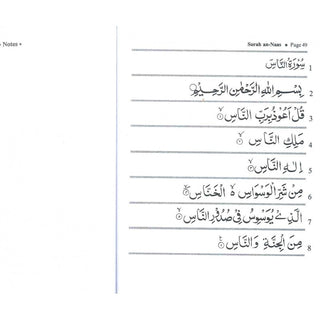 • Notes •
Surah an-Naas • Page 49
سُوْرَةُ النَّاسِ 1
بِسْمِ اللهِ الرَّحْمٰنِ الرَّحِيْمِ 2
قُلْ اَعُوْذُ بِرَبِّ النَّاسِ 3
مَلِكِ النَّاسِ 4
اِلٰهِ النَّاسِ 5
مِنْ شَرِّ الْوَسْوَاسِ ۙ الْخَنَّاسِ 6
الَّذِيْ يُوَسْوِسُ فِيْ صُدُوْرِ النَّاسِ 7
مِنَ الْجِنَّةِ وَالنَّاسِ 8